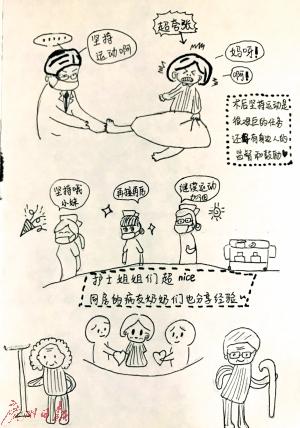 ......
坚持
运动啊
超夸张
妈呀!
啊!
术后坚持运动是
很艰巨的任务
还有身边人的
监督和鼓励
坚持哦
小妹
再接再厉
继续运动
加油
护士姐姐们超 nice
同房的病友奶奶们也分享经验~
广州日报